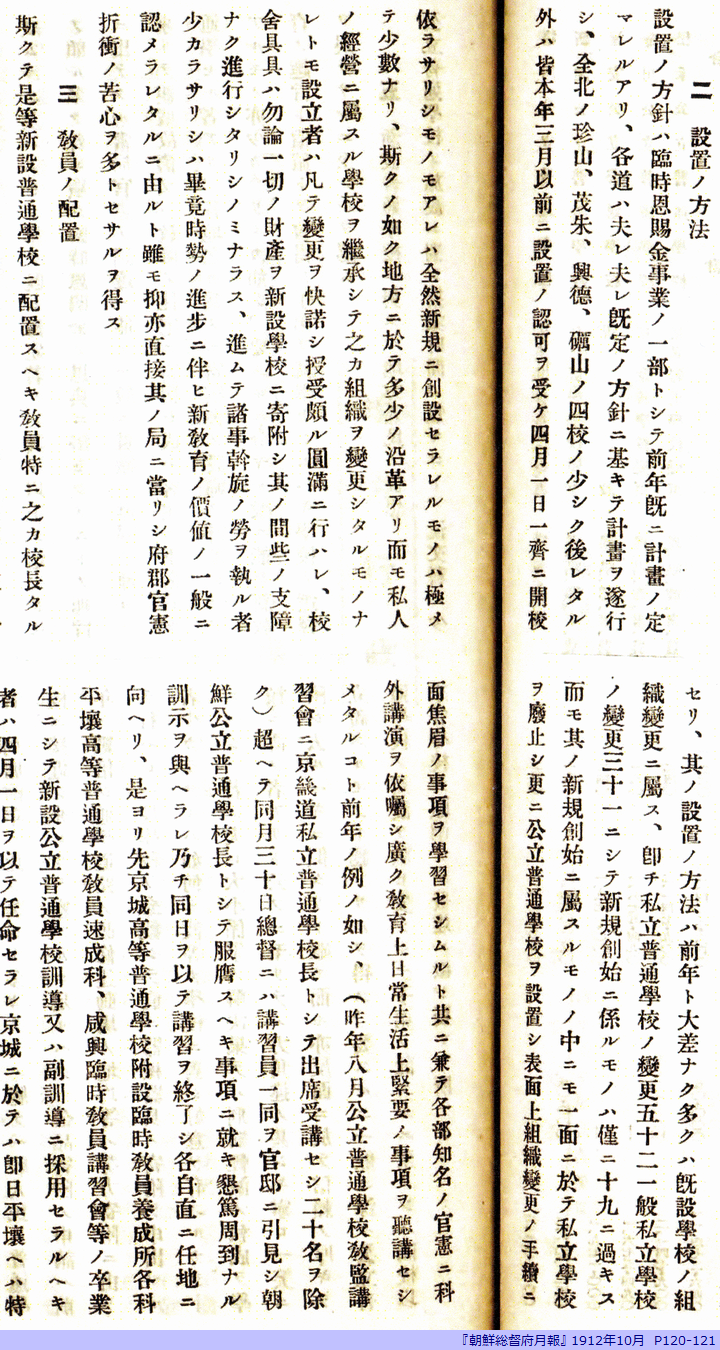 二 設置ノ方法
設置ノ方針ハ臨時恩賜金事業ノ一部トシテ前年既ニ計畫ノ定
マレルアリ、各道ハ夫レ夫レ既定ノ方針ニ基キテ計畫ヲ遂行
シ、全北ノ珍山、茂朱、興德、礪山ノ四校ノ少シク後レタル
外ハ皆本年三月以前ニ設置ノ認可ヲ受ケ四月一日一齊ニ開校
セリ、其ノ設置ノ方法ハ前年ト大差ナク多クハ既設學校ノ組
織變更ニ屬ス、卽チ私立普通學校ノ變更五十二一般私立學校
ノ變更三十一ニシテ新規創始ニ係ルモノハ僅ニ十九ニ過キス
而モ其ノ新規創始ニ屬スルモノノ中ニモ一面ニ於テ私立學校
ヲ廢止シ更ニ公立普通學校ヲ設置シ表面上組織變更ノ手續ニ
依ラサリシモノモアレハ全然新規ニ創設セラレルモノハ極メ
テ少數ナリ、斯クノ如ク地方ニ於テ多少ノ沿革アリ而モ私人
ノ經營ニ屬スル學校ヲ繼承シテ之カ組織ヲ變更シタルモノナ
レトモ設立者ハ凡テ變更ヲ快諾シ授受頗ル圓滿ニ行ハレ、校
舍具具ハ勿論一切ノ財產ヲ新設學校ニ寄附シ其ノ間些ノ支障
ナク進行シタリシノミナラス、進ムテ諸事斡旋ノ勞ヲ執ル者
少カラサリシハ畢竟時勢ノ進步ニ伴ヒ新敎育ノ價値ノ一般ニ
認メラレタルニ由ルト雖モ抑亦直接其ノ局ニ當リシ府郡官憲
折衝ノ苦心ヲ多トセサルヲ得ス
三 敎員ノ配置
斯クテ是等新設普通學校ニ配置スヘキ敎員特ニ之カ校長タル
面焦眉ノ事項ヲ學習セシムルト共ニ兼テ各部知名ノ官憲ニ科
外講演ヲ依囑シ廣ク敎育上日常生活上緊要ノ事項ヲ聽講セシ
メタルコト前年ノ例ノ如シ、（昨年八月公立普通學校敎監講
習會ニ京畿道私立普通學校長トシテ出席受講セシ二十名ヲ除
ク）超ヘテ同月三十日總督ニハ講習員一同ヲ官邸ニ引見シ朝
鮮公立普通學校長トシテ服膺スヘキ事項ニ就キ懇篤周到ナル
訓示ヲ與ヘラレ乃チ同日ヲ以テ講習ヲ終了シ各自直ニ任地ニ
向ヘリ、是ヨリ先京城高等普通學校附設臨時敎員養成所各科
平壤高等普通學校敎員速成科、咸興臨時敎員講習會等ノ卒業
生ニシテ新設公立普通學校訓導又ハ副訓導ニ採用セラルヘキ
者ハ四月一日ヲ以テ任命セラレ京城ニ於テハ卽日平壤ヘハ特
『朝鮮総督府月報』1912年10月 P120-121